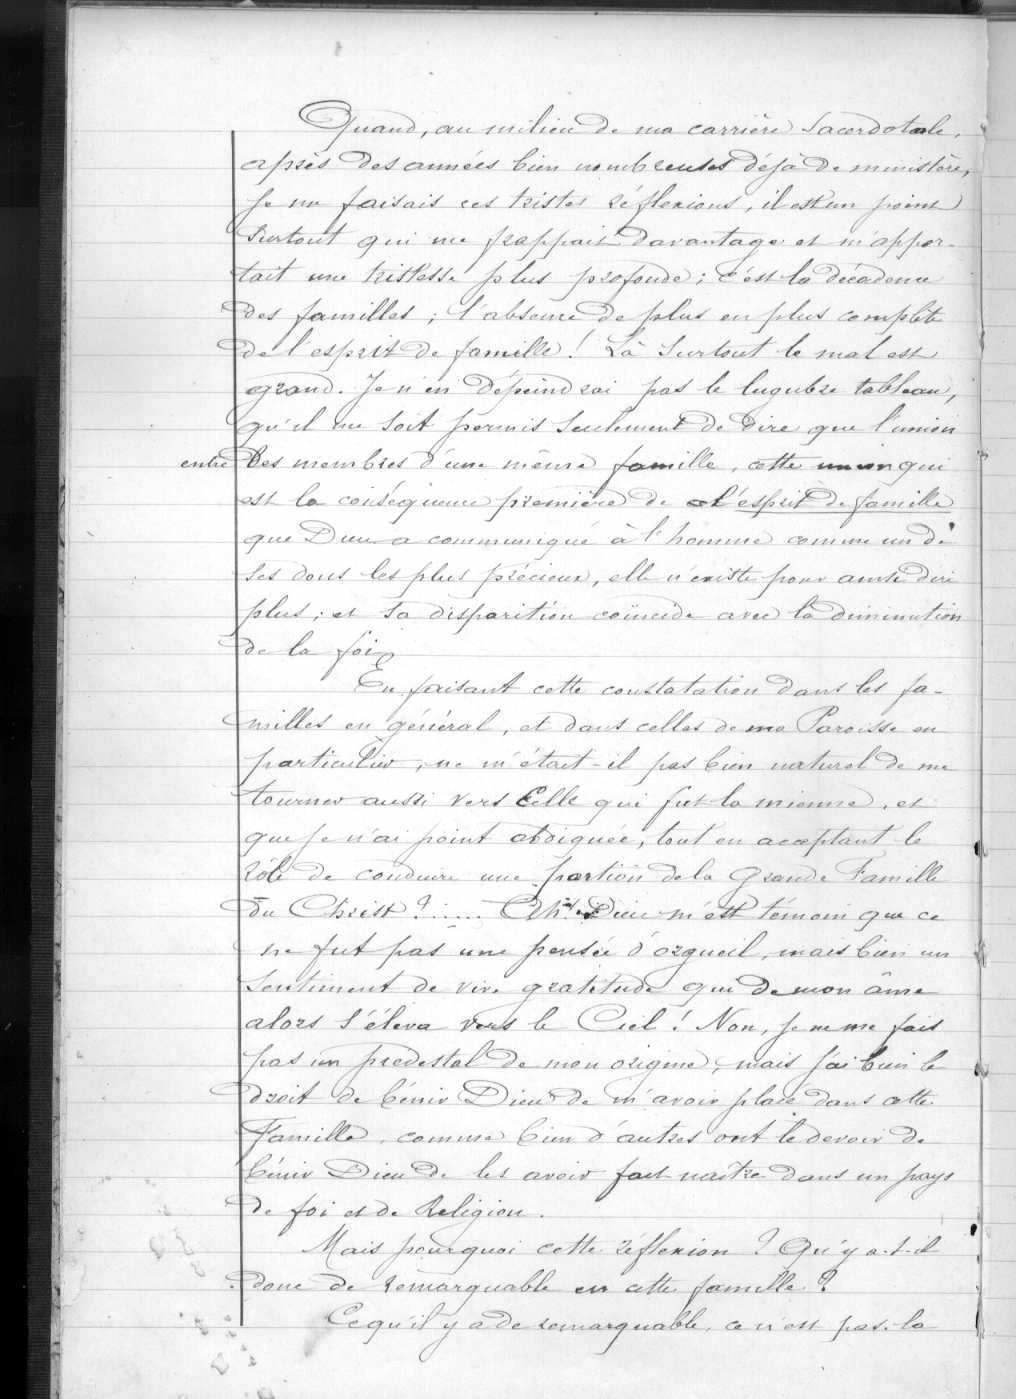 Quand, au milieu de ma carrière Sacerdotale,
après des années bien nombreuses déjà de ministère,
je me faisais ces tristes réflexions, il est un point
Surtout qui me frappait davantage et m'appor-
tait une tristesse plus profonde ; c'est la décadence
des familles ; l'absence de plus en plus complète
de l'esprit de famille ! Là Surtout le mal est
grand. Je n'en dépeindrai pas le lugubre tableau,
qu'il me soit permis seulement de dire que l'union
entre les membres d'une même famille, cette union qui
est la conséquence première de l'esprit de famille
que Dieu a communiqué à l'homme comme un de
ses dons les plus précieux, elle n'existe pour ainsi dire
plus ; et sa disparition coïncide avec la diminution
de la foi.
En faisant cette constatation dans les fa-
milles en général, et dans celles de ma Paroisse en
particulier, ne m'était-il pas bien naturel de me
tourner aussi vers Celle qui fut la mienne, et
que je n'ai point abdiquée, tout en acceptant le
rôle de conduire une portion de la Grande Famille
du Christ ? ..... Ah ! Dieu m'est témoin que ce
ne fut pas une pensée d'orgueil, mais bien un
sentiment de vive gratitude que de mon âme
alors s'éleva vers le Ciel ! Non, je ne me fais
pas un piedestal de mon origine, mais j'ai bien le
droit de bénir Dieu de m'avoir placé dans cette
Famille, comme bien d'autres ont le devoir de
bénir Dieu de les avoir fait naître dans un pays
de foi et de Religion.
Mais pourquoi cette réflexion ? Qu'y a-t-il
donc de remarquable en cette famille ?
Ce qu'il y a de remarquable, ce n'est pas la